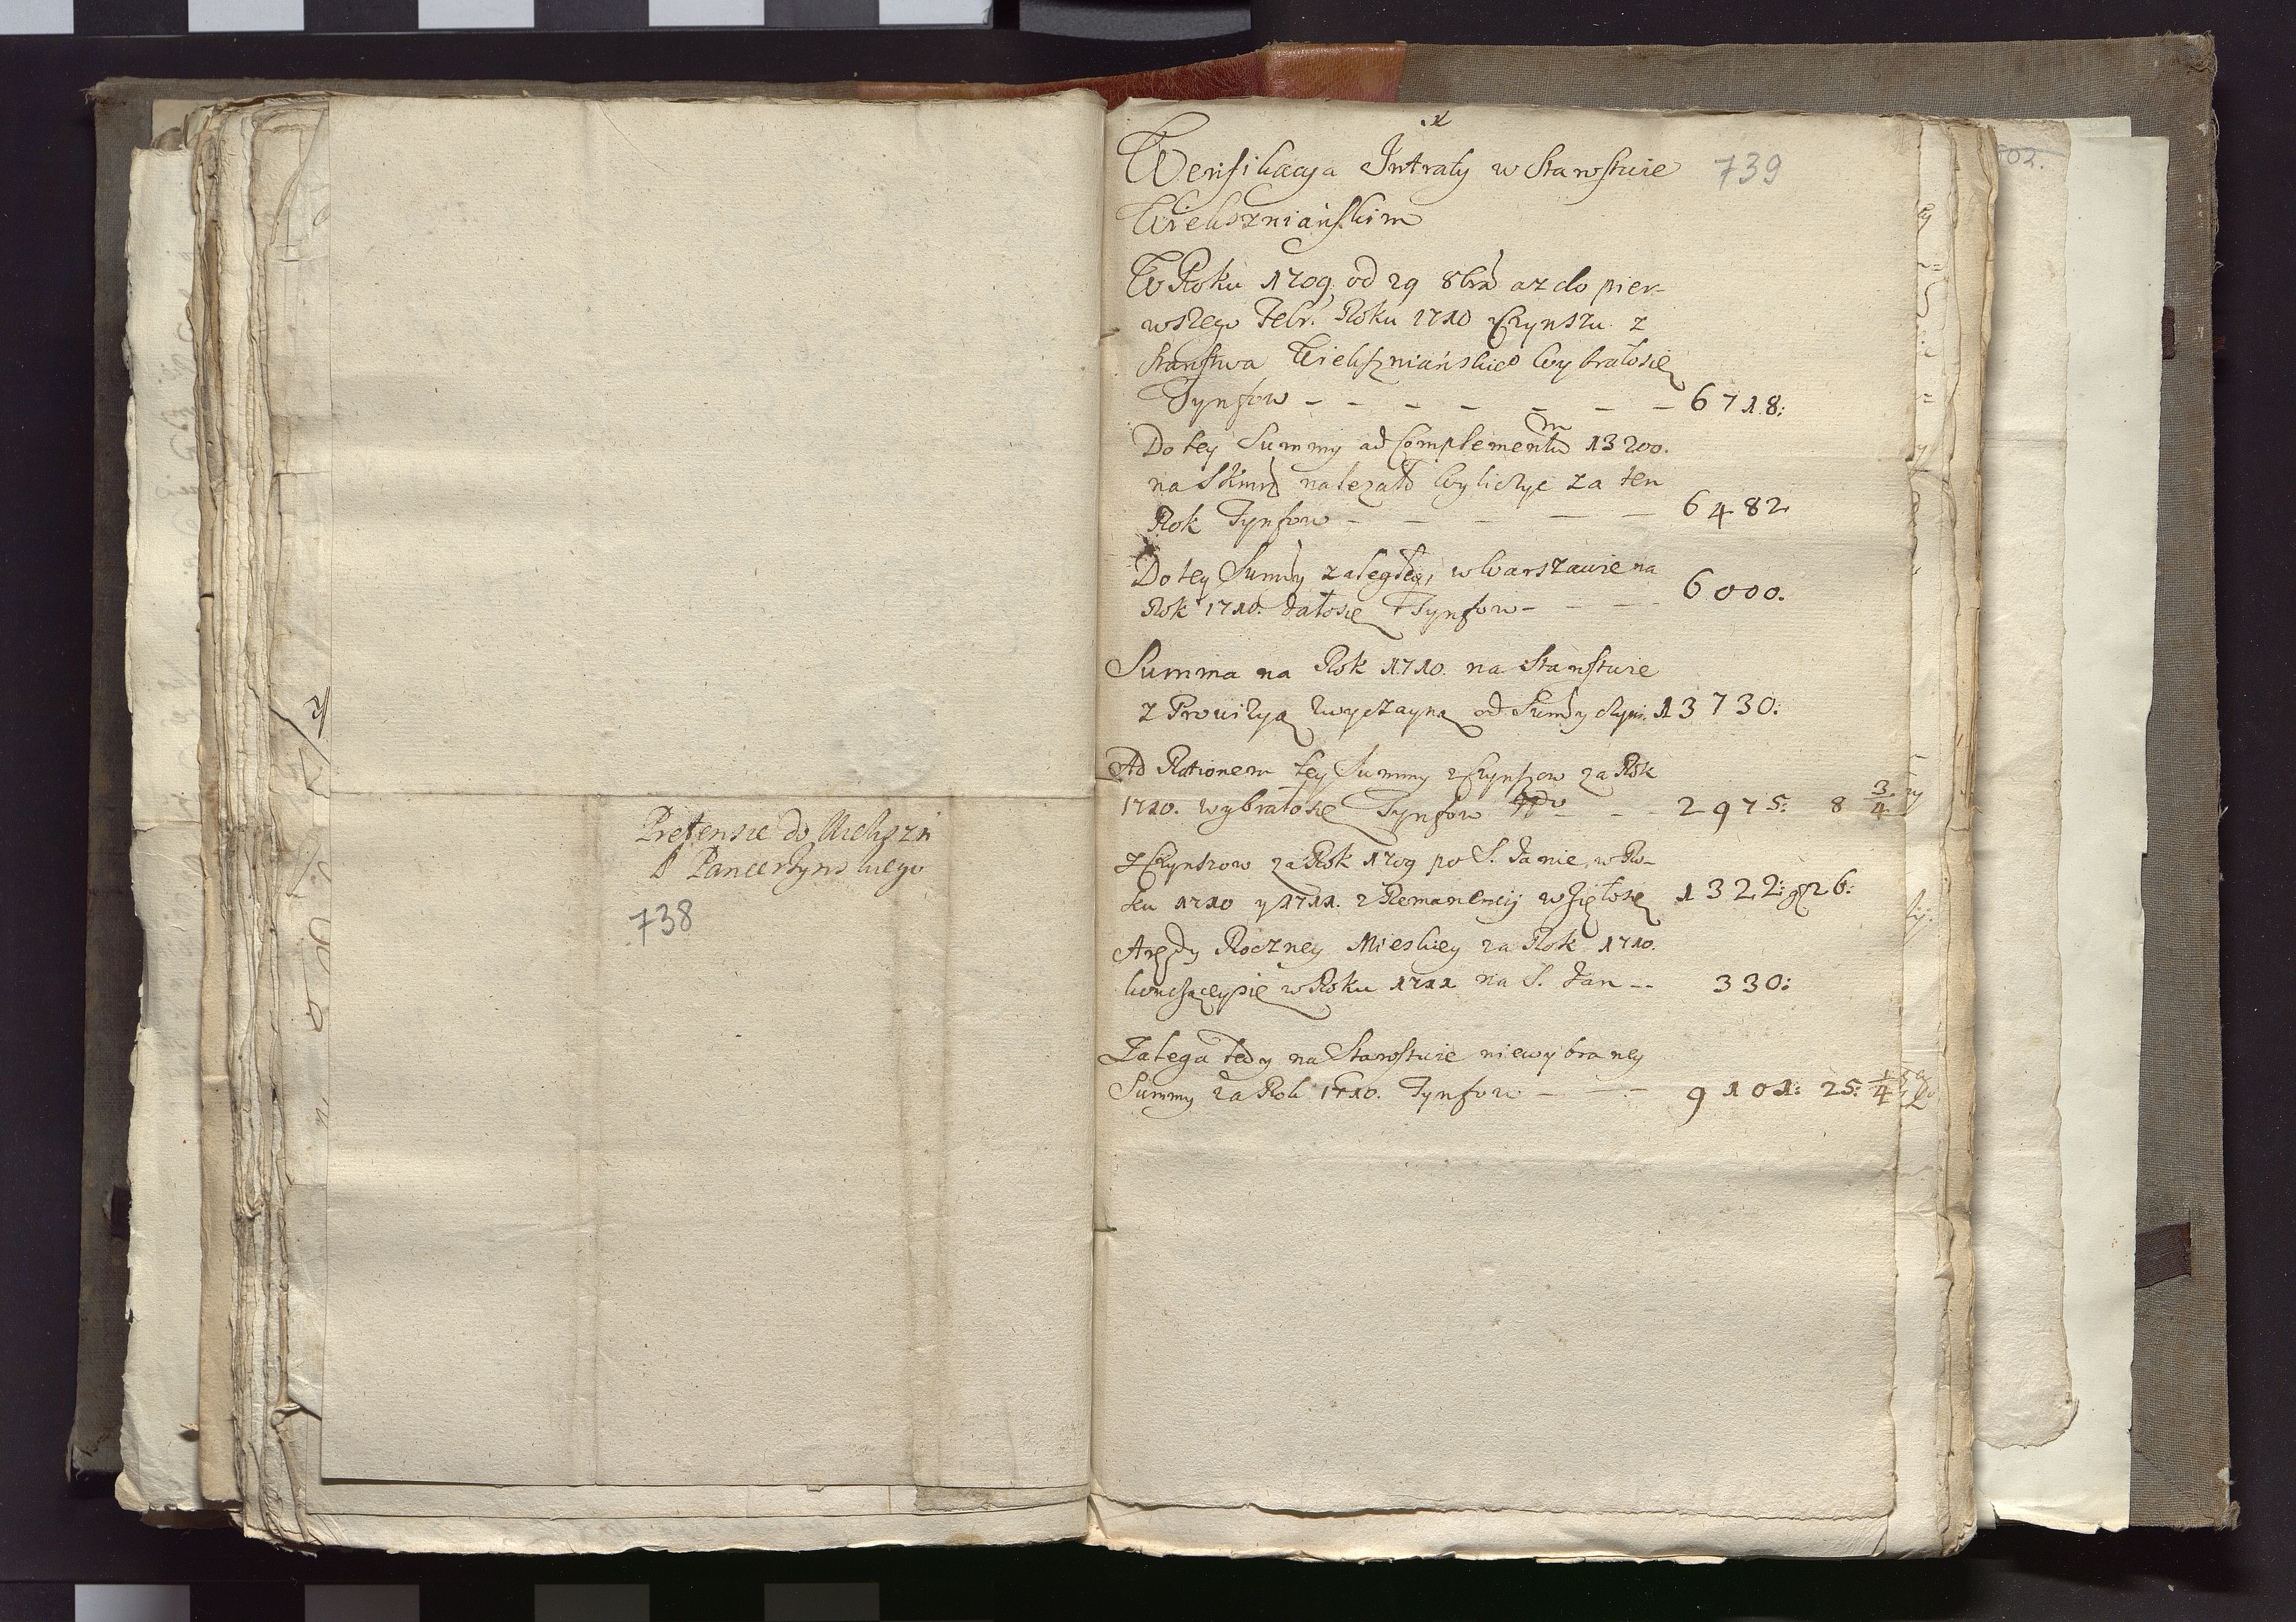 Pretensie do Wiekszń
P Pancerzynskiego
738
1
Werifikacya Intraty w Starostwie
739
Wiekszniańskim
W Roku 1709 od 29 8bra az do pier-
wszego Febr. Roku 1710 z Czynszu z
Starostwa Wiekszniańskieo Wybrałosię
Tynfow - - - - - - - 6718:
Do tey Summy ad Complementum 13200.
na należało Wyliczyc za ten
Rok Tynfow - - - - - 6482
Do tey Summy zaległey, w Warszawie na
Rok 1710. dałosie Tynfow - - - 6000.
Summa na Rok 1710. na Starostwie
z Prowizyą zwyczayną od Summy 13730:
Ad Rationem tey Summy z Czynszow za Rok
1710. wybrałosie Tynfow - - - 2975: 8 3/4
z Czynszow za Rok 1709 po S. Janie, w Ro-
ku 1710 y 1711. z Remanencij wzięłosię 1322: gr 26:
Arędy Roczney Mieskiey za Rok 1710.
konczącysię w Roku 1711 na S. Jan -- 330:
Zalega tedy na Starostwie niewybraney
Summy za Rok 1710. Tynfow - - - 9101: 25: 1/4